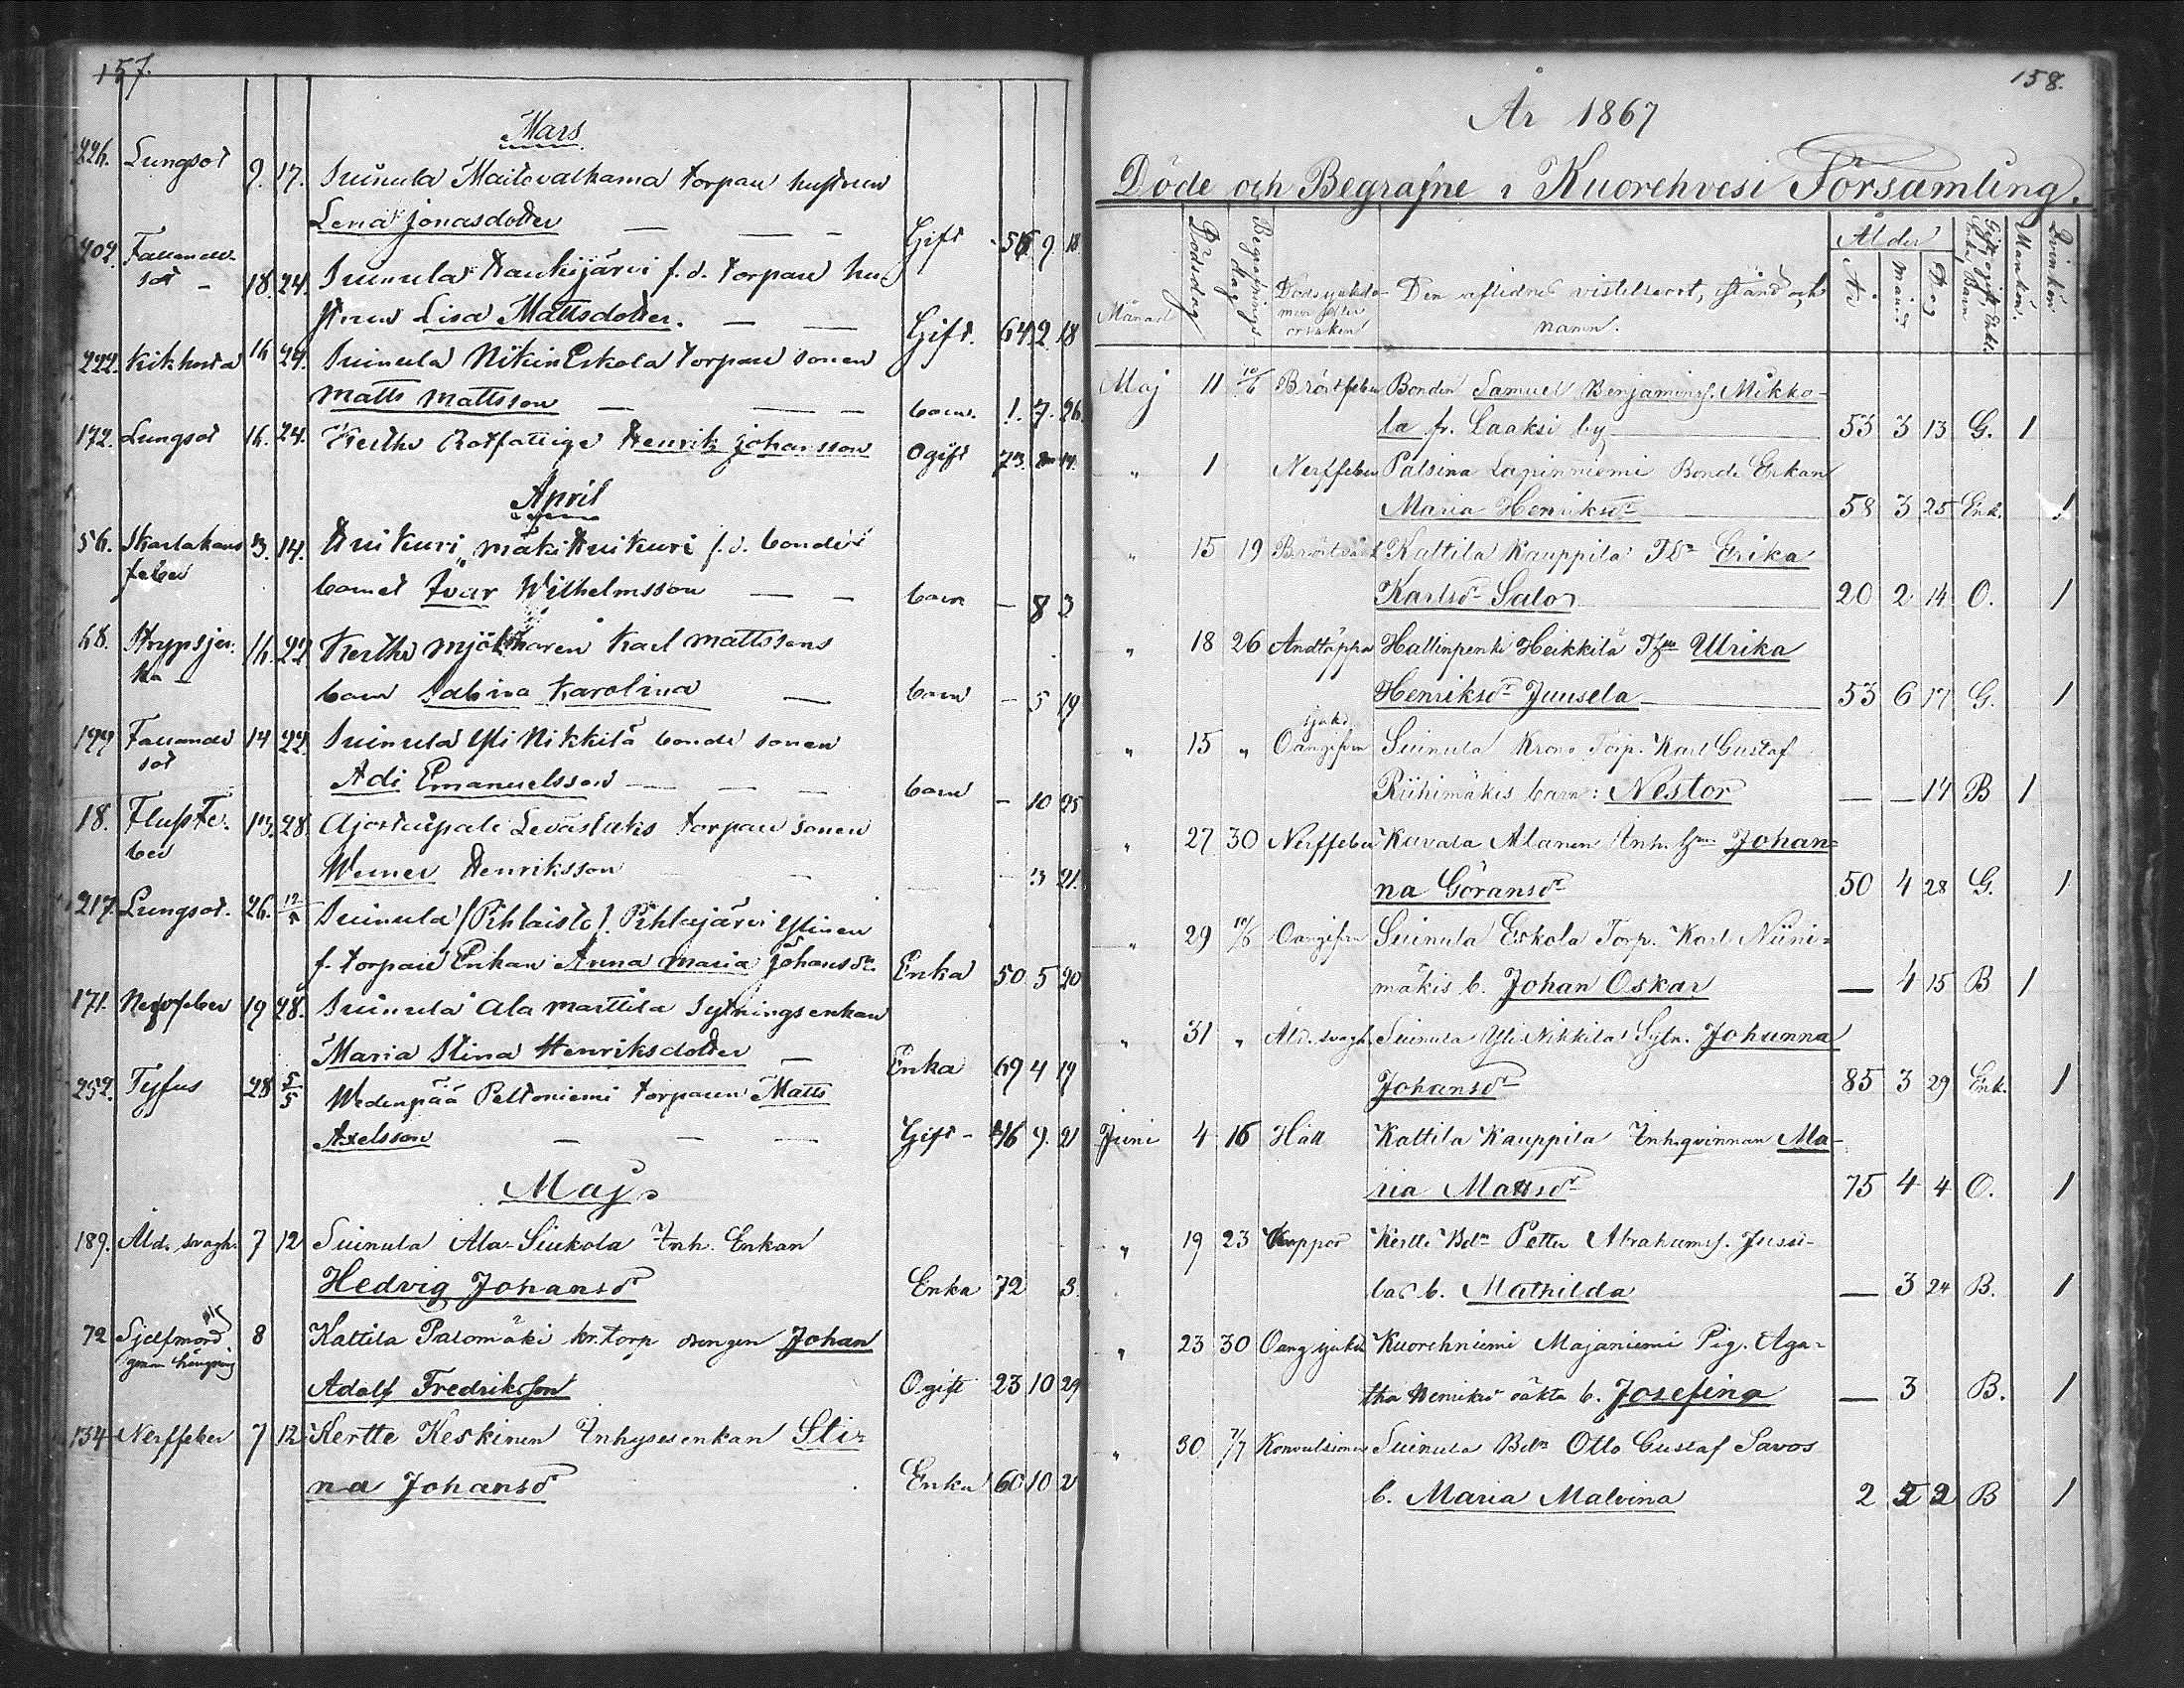 157.
Mars
226. Lungsot 9. 17. Suinula Maitovalkama torpau hustrun
Lena Jonasdotter — — — Gift 9. 18
202. Fallande Suinula Haukijärvi f. d. torpau hu
sot — 18. 24. strun Lisa Mattsdotter. — — Gift. 64 2. 18
222. Kikhosta 16 24. Suinula Nikin Eskola torpau sonen
Matts Mattsson — — — barn. 1. 7. 26.
172. Lungsot 16. 24. Kertte Rotfattige Henrik Johansson Ogift 73. 14.
April
56. Skarlakans 3. 14. Huikuri, mäki Huikuri f. d. bondes
feber barnet Ivar Wilhelmsson — — barn — 8 3
68. Strypsju- 16. 22 Kertte Mjölnaren Karl Mattssons
ka — barn Sabina Karolina — barn — 5 19
Fallande 14 22. Suinula Yli Nikkilä bonde sonen
sot Adi Emanuelsson — — — barn — 10 25
18. Flussfe- 13. 28. Levästaks torpau sonen
ber Werner Henriksson — — — — 3 21.
217. Lungsot. 26. 12/5 Suinula /Pihlaisto/. Pihlajärvi Ylinen
f. torpau Enkan Anna Maria Johansdr. Enka 50 5 20
171. Nervfeber 19 28. Suinula Ala Marttila Sytningsenkan
Maria Stina Henriksdotter — Enka 69 4 19
252. Tyfus 28 5/5 Wedenpää Peltoniemi torparen Matts
Axelsson — — — Gift - 46 9. 21
Maj
189. Åld. svagh. 7 12 Suinula Ala-Siukola Inh. Enkan
Hedvig Johansdr Enka 72 3.
72 Sjelfmord 8 Kattila Palomäki kr. torp drengen Johan
genom hängning Adolf Fredriksson Ogift 23 10 29
134 Nerffeber 7 12 Kertte Keskinen Inhysesenkan Sti-
na Johansdr Enka 60 10 2
158.
År 1867
Döde och Begrafne i Kuorehvesi Församling.
Månad Dödsdag Begrafnings dag Dödssjukdo- men eller orsaken Den aflidnes vistelseort, stånd och namn. Ålder År. Månad Dag Gift, ogift, Enkl. Enka, Barn Mankön. Qvinkön
Maj 11 10/6 Bröstfeber Bonden Samuel Benjaminss. Mikko-
la fr. Laaksi by 53 3 13 G. 1
" 1 Nerffeber Palsina Lapinniemi Bonde Enkan
Maria Henriksdr 58 3 25 Enk. 1
" 15 19 Bröstvärk Kattila Kauppila Erika
Karlsdr Salo 20 2 14 O. 1
" 18 26 Andtäppa Hallinpenki Heikkilä Ulrika
Henriksdr Juusela 53 6 17 G. 1
" 15 " Oangifven sjukd. Suinula Krono Torp. Karl Gustaf
Riihimäkis barn: Nestor — — 14 B 1
" 27 30 Nerffeber Kavala Alanen Inh. Johan-
na Göransdr 50 4 28 G. 1
" 29 10/6 Oangifven Suinula Eskola Torp. Karl Niini-
mäkis b. Johan Oskar — 4 15 B 1
" 31 " Åld. svagh. Suinula Yli Nikkilä Sytn. Johanna
Johansdr 85 3 29 Enk. 1
Juni 4 16 Håll Kattila Kauppila Inh. qvinnan Ma-
ria Mattsdr 75 4 4 O. 1
" 19 23 Koppor Kertte Bdn Petter Abrahamss. Jussi-
las b. Mathilda — 3 24 B. 1
" 23 30 Oang sjukd Kuorehniemi Majaniemi Pig. Aga-
tha Henriksd oäkta b. Josefina — 3 B. 1
" 30 7/7 Konvulsioner Suinula Bdn Otto Gustaf Savos
b. Maria Malvina 2 2 B 1